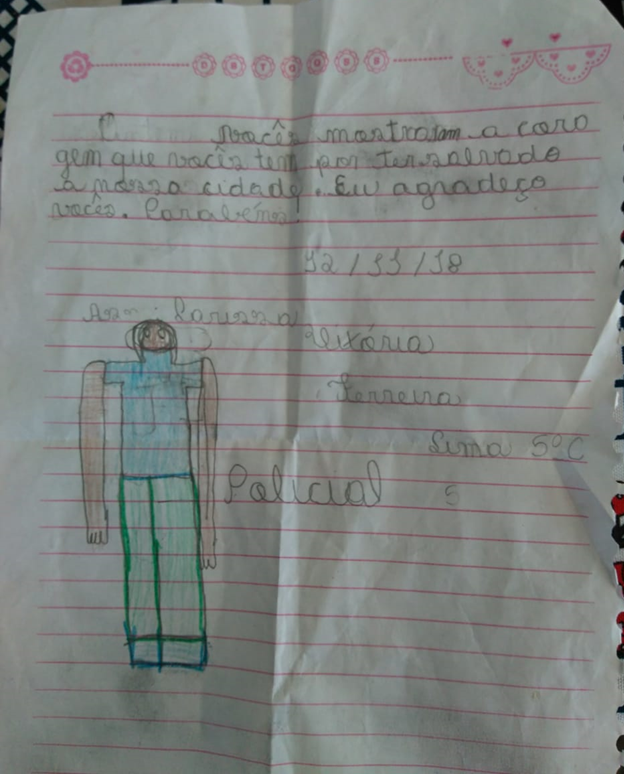 vocês mostraram a cora
gem que vocês tem por ter salvado
a nossa cidade. Eu agradeço
vocês. Parabéns!
12/11/18
Ass: Larissa
Vitória
Ferreira
Lima 5º C
Policial